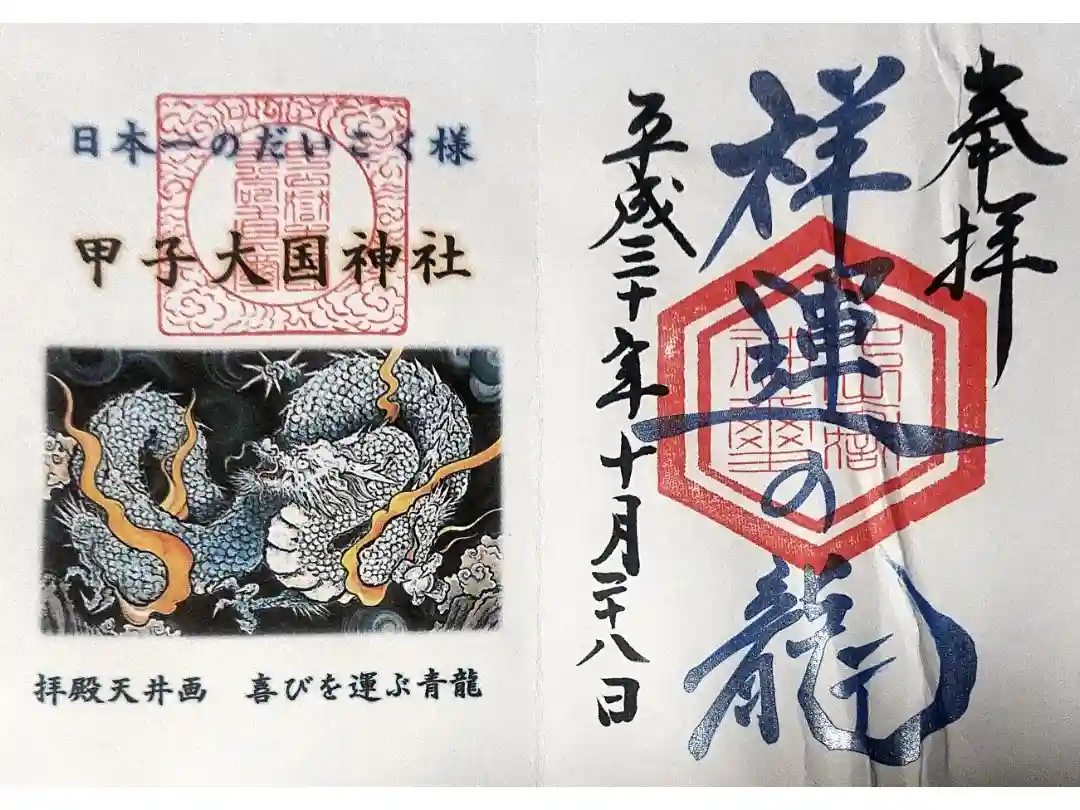 奉拝
祥運の龍
平成三十年十月二十八日
日本一のだいこく様
甲子大国神社
拝殿天井画 喜びを運ぶ青龍